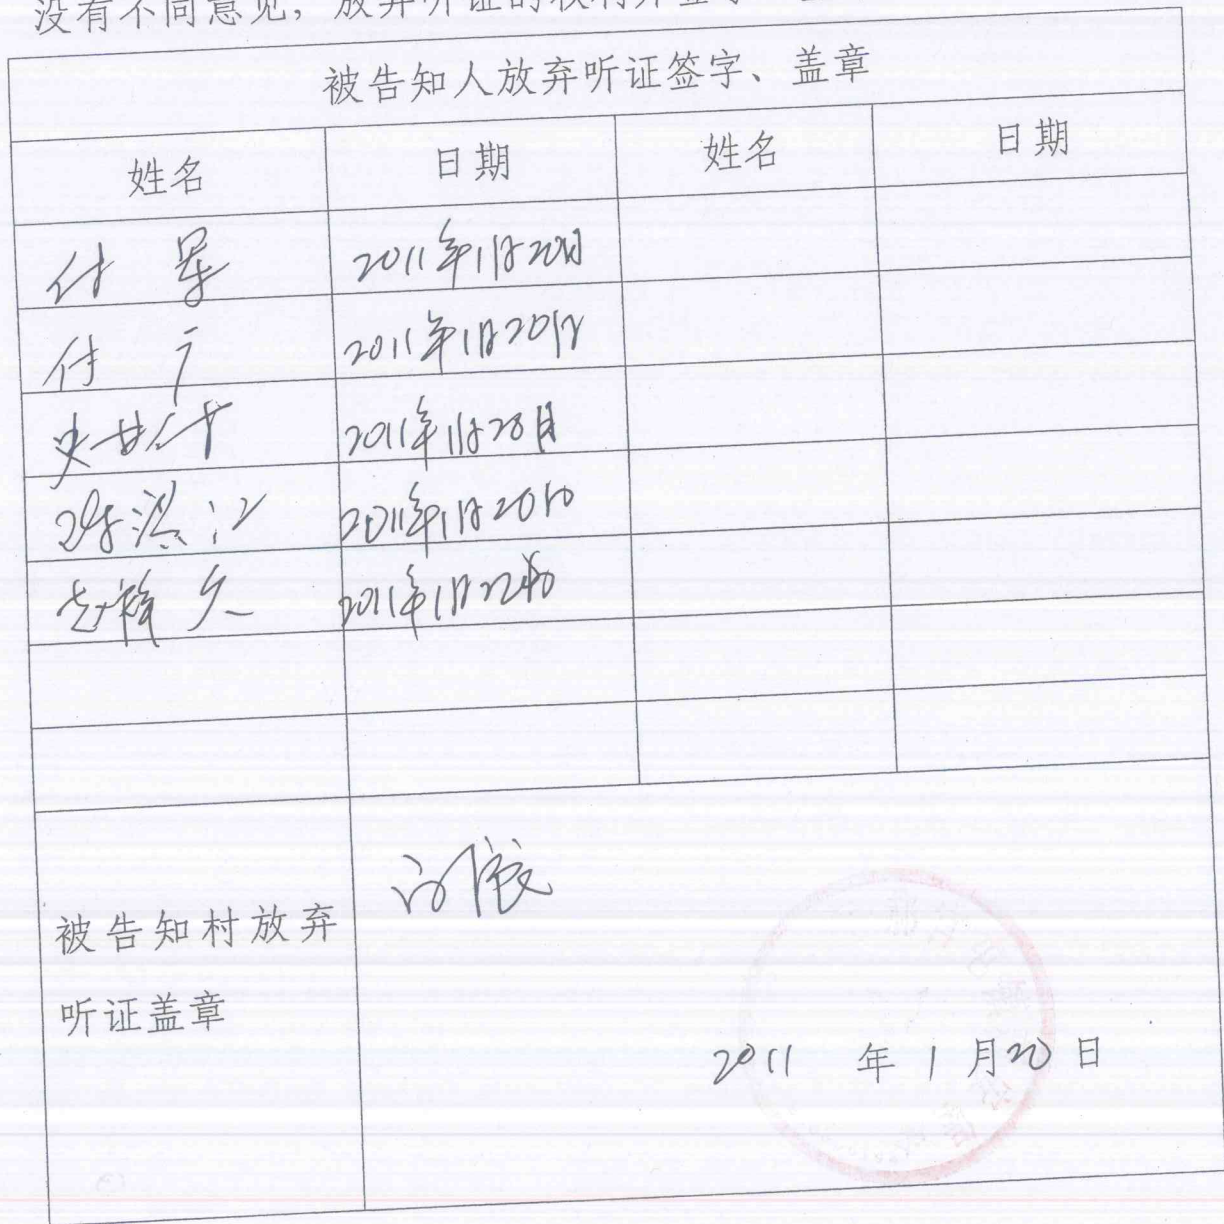 没有不同意见，放弃听证的权利并签字
被告知人放弃听证签字、盖章
姓名 日期 姓名 日期
付 军 2011年1月20日
付 广 2011年1月20日
2011年1月20日
2011年1月20日
2011年1月
被告知村放弃
听证盖章
2011 年 1 月 20 日